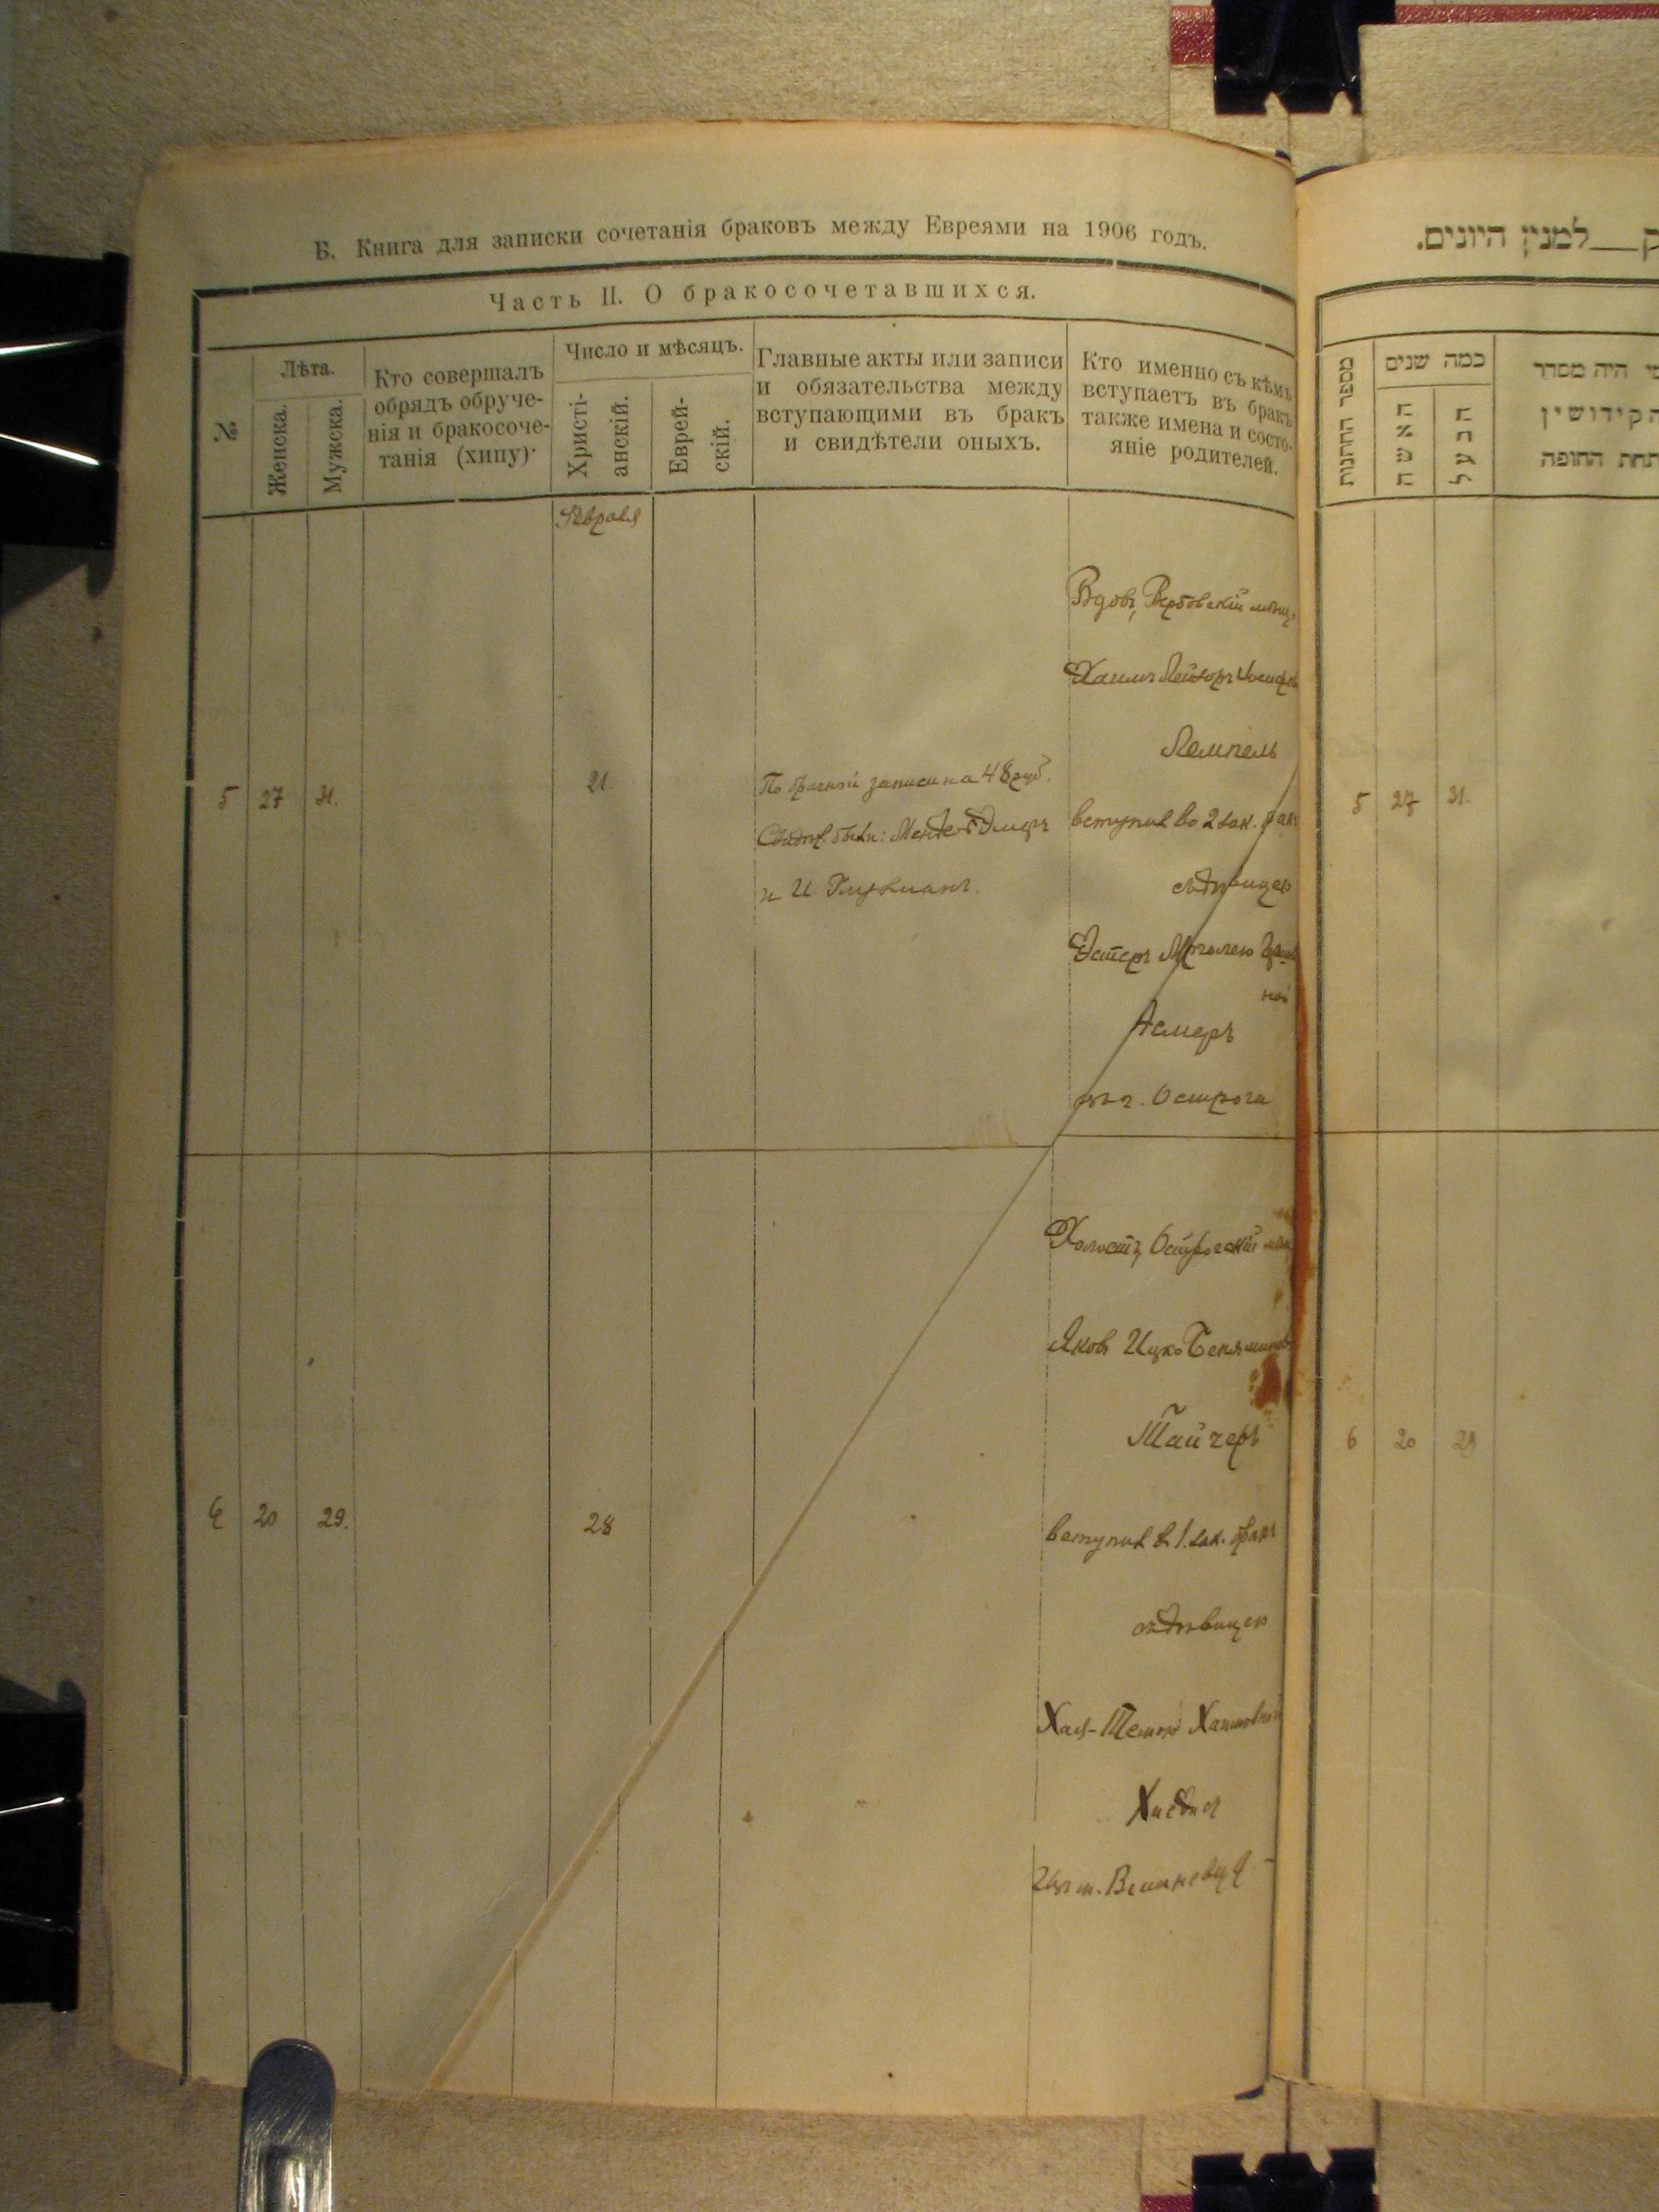 Б. Книга для записки сочетанія браковъ между Евреями на 1906 годъ.
Часть II. О бракосочетавшихся.
№
Лѣта.
Женска.
Мужска.
Кто совершалъ
обрядъ обруче-
нія и бракосоче-
танія (хипу)
Число и мѣсяцъ.
Христі-
анскій.
Еврей-
скій.
Главные акты или записи
и обязательства между
вступающими въ бракъ
и свидѣтели оныхъ.
Кто именно съ кѣмъ
вступаетъ въ бракъ
также имена и состо-
яніе родителей.
Февраля
5 27 31. 21.
По брачной записи на 48 руб.
Свидѣт. были:
и И.
Вдовъ, Вербовскій мѣщ.
Хаимъ Лейзоръ
Лемпель
вступил во 2 зак. брак
съ дѣвицею
Эстеръ
из г. Острога
6 20 29. 28
Холостъ, Острогскій
Яковъ Ицко Беняминов
Тайчеръ
вступил в 1. зак. бракъ
съ дѣвицею
Хая- Хаимовной
Изъ м. Вишневца
ק __ למנין היונים.
מספר החתונות
כמה שנים
האשה
הבעל
מי היה מסדר
הקידושין
תחת החופה
5 27 31.
6 20 29